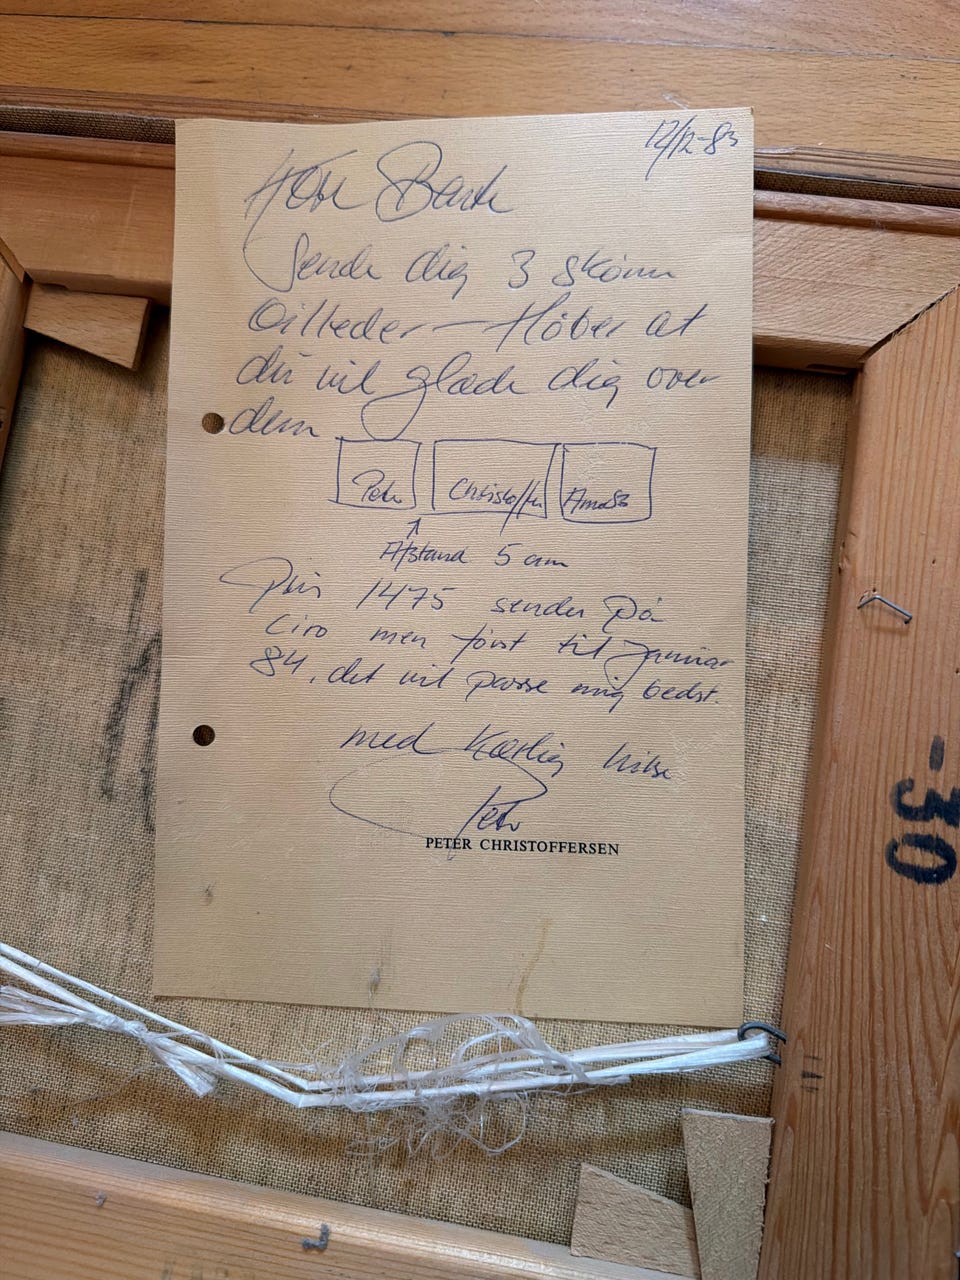 12/12-83
Kære Bente
Sender dig 3 skønne
Billeder – Håber at
du vil glæde dig over
dem
Peter Christoffer
Afstand 5 cm
Pris 1475 sender på
Giro men først til Januar
84, det vil passe mig bedst.
med Kærlig hilsen
Peter
PETER CHRISTOFFERSEN
-30